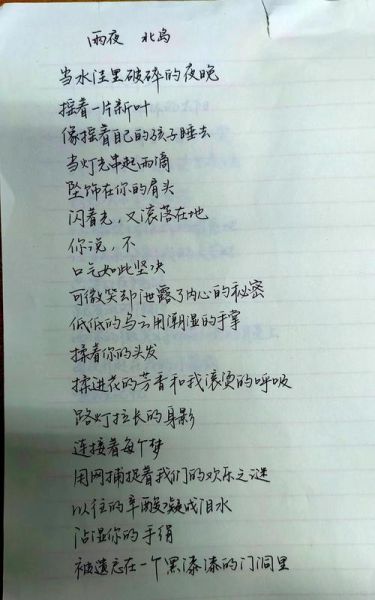 雨夜 北岛
当水洼里破碎的夜晚
摇着一片新叶
像摇着自己的孩子睡去
当灯光串起雨滴
坠饰在你的肩头
闪着光，又滚落在地
你说，不
口气如此坚决
可微笑却泄露了内心的秘密
低低的乌云用潮湿的手掌
揉着你的头发
揉进花的芳香和我滚烫的呼吸
路灯拉长的身影
连接着每个梦
用网捕捉着我们的欢乐之谜
以往的辛酸凝成泪水
沾湿你的手绢
被遗忘在一个黑漆漆的门洞里